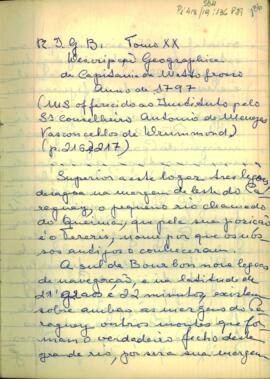 R. I. G. B. Tomo XX
Descripção Geographica
da Capitania de Matto Grosso
Anno de 1797
(MS offerecido ao Instituto pelo
Sr Conselheiro Antonio de Menezes
Vasconcellos de Drummond)
(p. 216 217)
Superior a este logar tres legoas
desagoa na margem de leste do Pa-
raguay, o pequeno rio chamado
do Queima, que pela sua posição
é o Tereris, nome por que os nos-
sos antigos o conheceram.
Ao sul de Bourbon nove legoas
de navegação, e na latitude de
21 gráos e 22 minutos, existem
sobre ambas as margens do Pa-
raguay outros montes que for-
mam o verdadeiro fecho deste
grande rio, por ser a sua margem